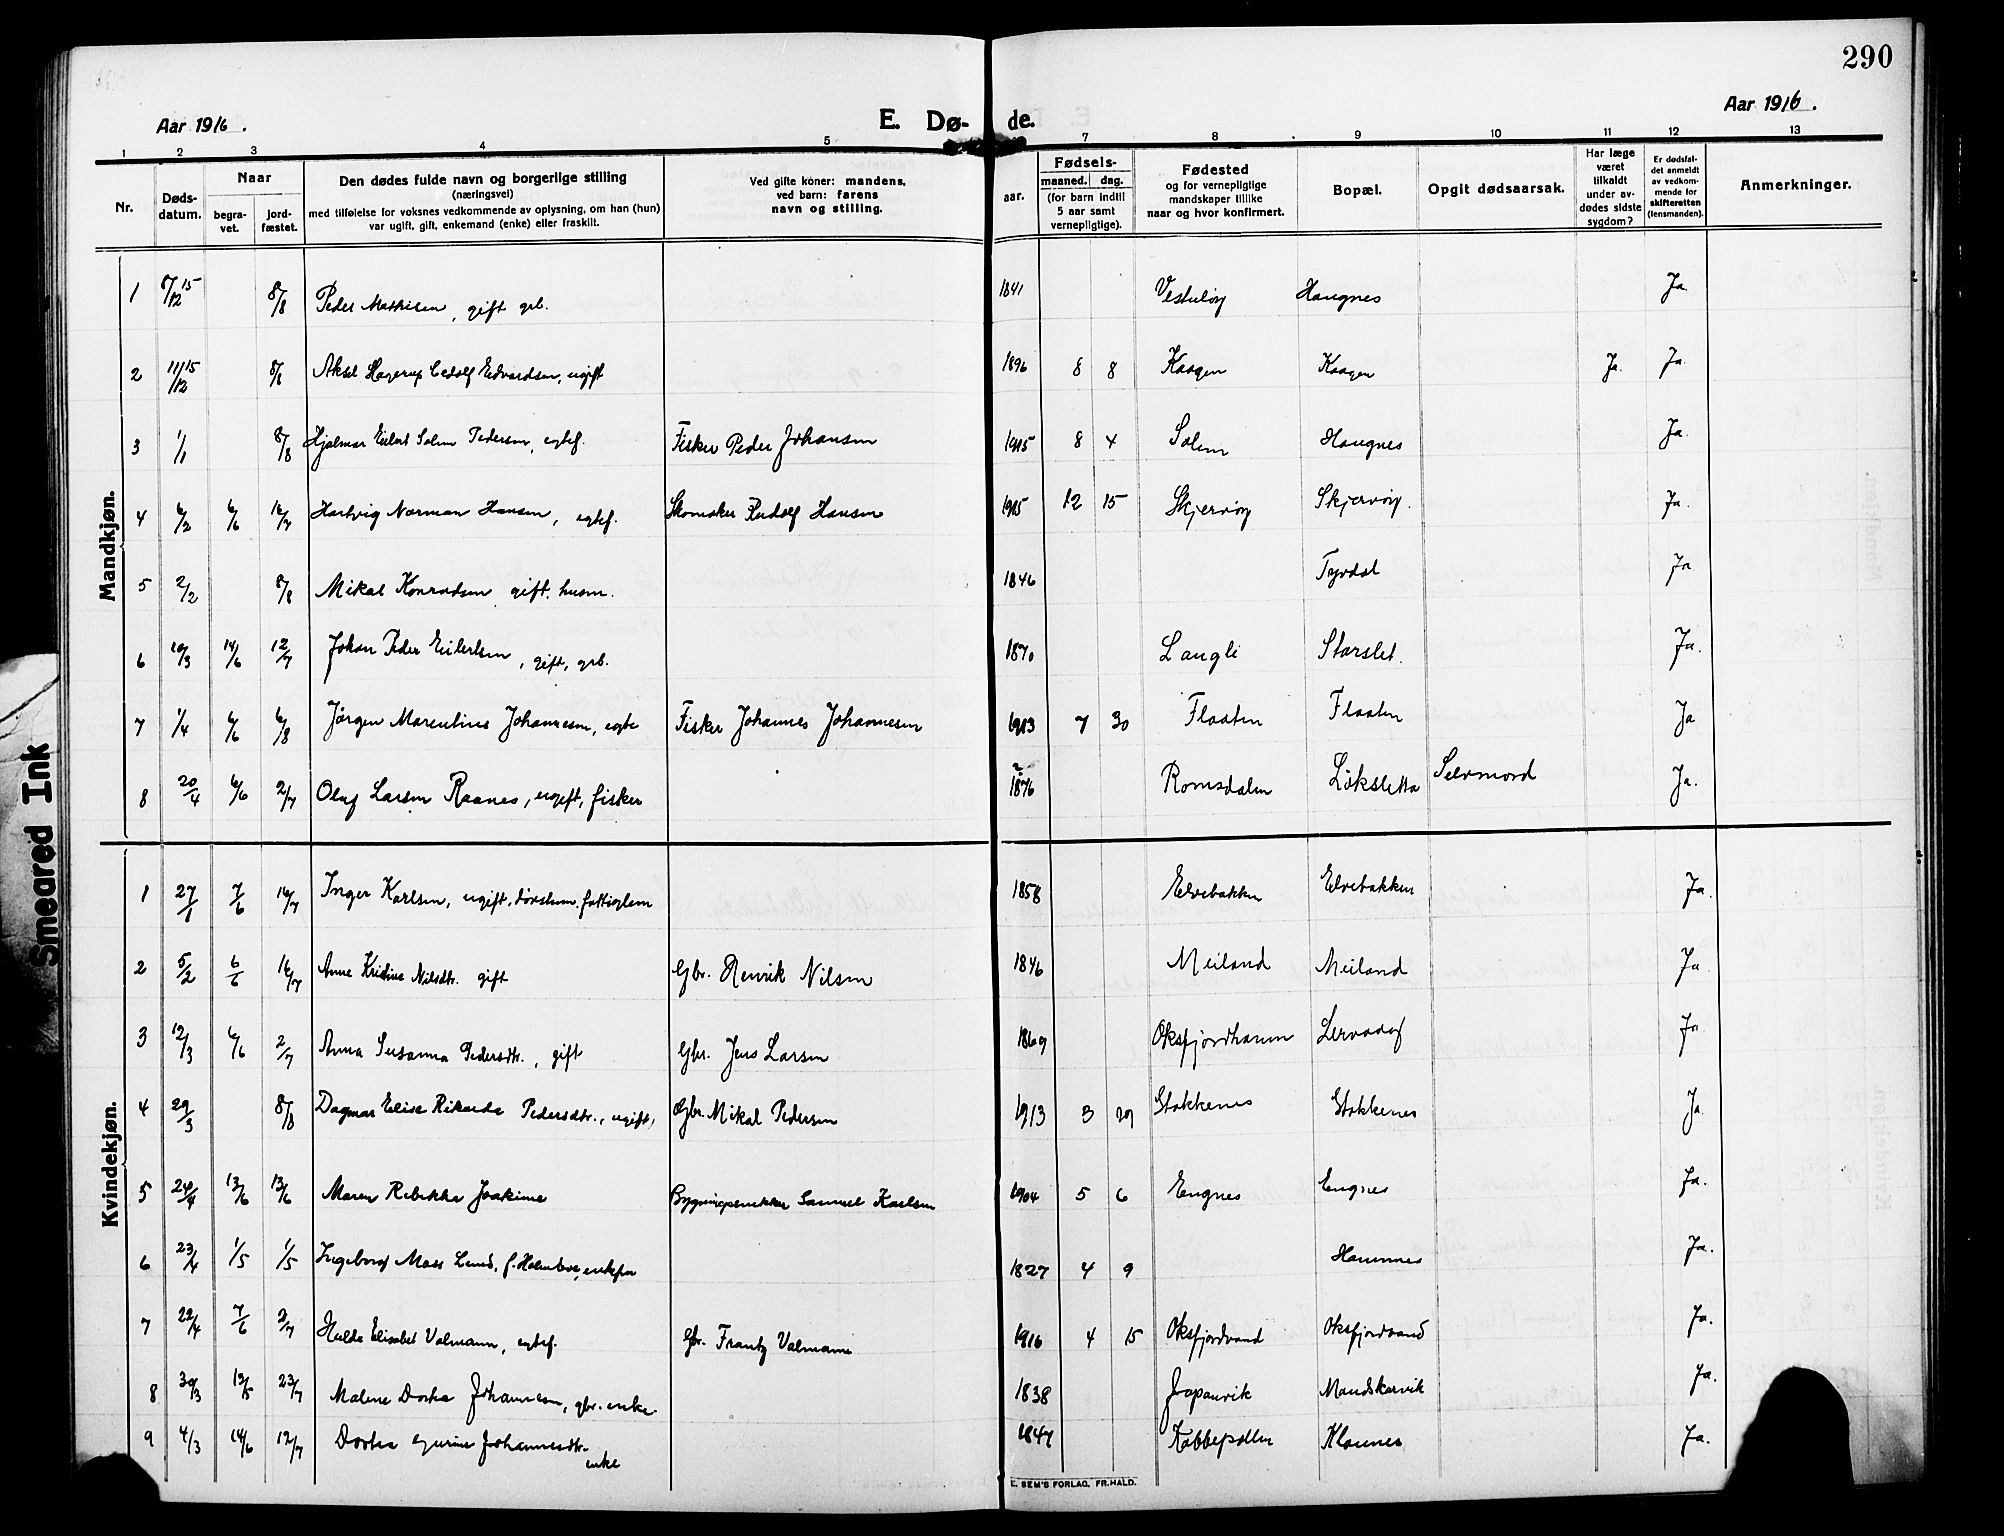 290
Aar 1916.
Aar 1916.
E. Dø- de.
1 2 3 4 5 7 8 9 10 11 12 13
Nr.
Døds-
datum.
Naar
begra-
vet.
jord-
fæstet.
Den dødes fulde navn og borgerlige stilling
(næringsvei)
med tilføielse for voksnes vedkommende av oplysning, om han (hun)
var ugift, gift, enkemand (enke) eller fraskilt.
Ved gifte koner: mandens,
ved barn: farens
navn og stilling.
Fødsels-
aar. maaned. dag.
(for barn indtil
5 aar samt
vernepligtige).
Fødested
og for vernepligtige
mandskaper tillike
naar og hvor konfirmert.
Bopæl.
Opgit dødsaarsak.
Har læge
været
tilkaldt
under av-
dødes sidste
sygdom?
Er dødsfal-
det anmeldt
av vedkom-
mende for
skifteretten
(lensmanden).
Anmerkninger.
Mandkjøn.
1 8/8 Peder Mathisen, gift grb. 1841 Haugnes Ja.
2 11/12 15 8/8 Aksel Hagerup Edvardsen, ugift 1896 8 8 Kaagen Kaagen Ja. Ja.
3 1/1 8/8 Hjalmar Eilert Solem Pedersen, egtef. Fisker Peder Johansen 1915 8 4 Solem Haugnes Ja.
4 6/2 6/6 16/7 Hartvig Norman Hansen, egtef. Skomaker Rudolf Hansen 1915 12 15 Skjervöy Skjervöy. Ja.
5 2/2 8/8 Mikal Konradsen gift. husm. 1846 Ja
6 10/3 14/6 12/7 Johan Peder Eilertsen, gift, grb. 1870 Langli Storslet. Ja.
7 1/4 6/6 6/8 Jørgen Johannesen, egte Fisker Johannes Johannesen 1913 7 30 Flaaten Flaaten Ja
8 20/4 6/6 2/7 Olaf Larsen Raanes, ugift, fisker 1876 Romsdalen Löksletta Selvmord Ja.
Kvindekjøn.
1 27/1 7/6 16/7 Inger Karlsen, ugift, døvstum. fattiglem 1858 Elvebakken Elvebakken Ja.
2 5/2 6/6 16/7 Anne Kristine Nilsdtr. gift Gbr. Henrik Nilsen 1846 Meiland Meiland Ja.
3 12/3 6/6 2/7 Anna Susanna Pedersdtr., gift Gbr. Jens Larsen 1869 Oksfjordhavn Ja.
4 29/3 8/8 Dagmar Elise Rikarde Pedersdtr., ugift, Gbr. Mikal Pedersen 1913 3 29 Stokkenes Stokkenes Ja.
5 13/6 13/6 Maren Rebekka Joakime Bygningssnekker Samuel Karlsen 1904 5 6 Engnes Engnes Ja.
6 23/4 1/5 1/5 Ingeborg Maas Lund, f. Holmboe, enkefru 1827 4 9 Havnnes Ja.
7 22/4 7/6 2/7 Hulda Elisabet Valmann, egtef. Gbr. Frantz Valmann 1916 4 15 Oksfjordvand Oksfjordvand Ja.
8 30/3 13/5 23/7 Malene Dorka Johannesen, gbr. enke. 1838 Maudskarvik Ja.
9 4/3 14/6 12/7 Dorka Gurine Johannesdtr.
enke 1847 Ja.
E. SEM'S FORLAG, FR.HALD.
Smeared Ink